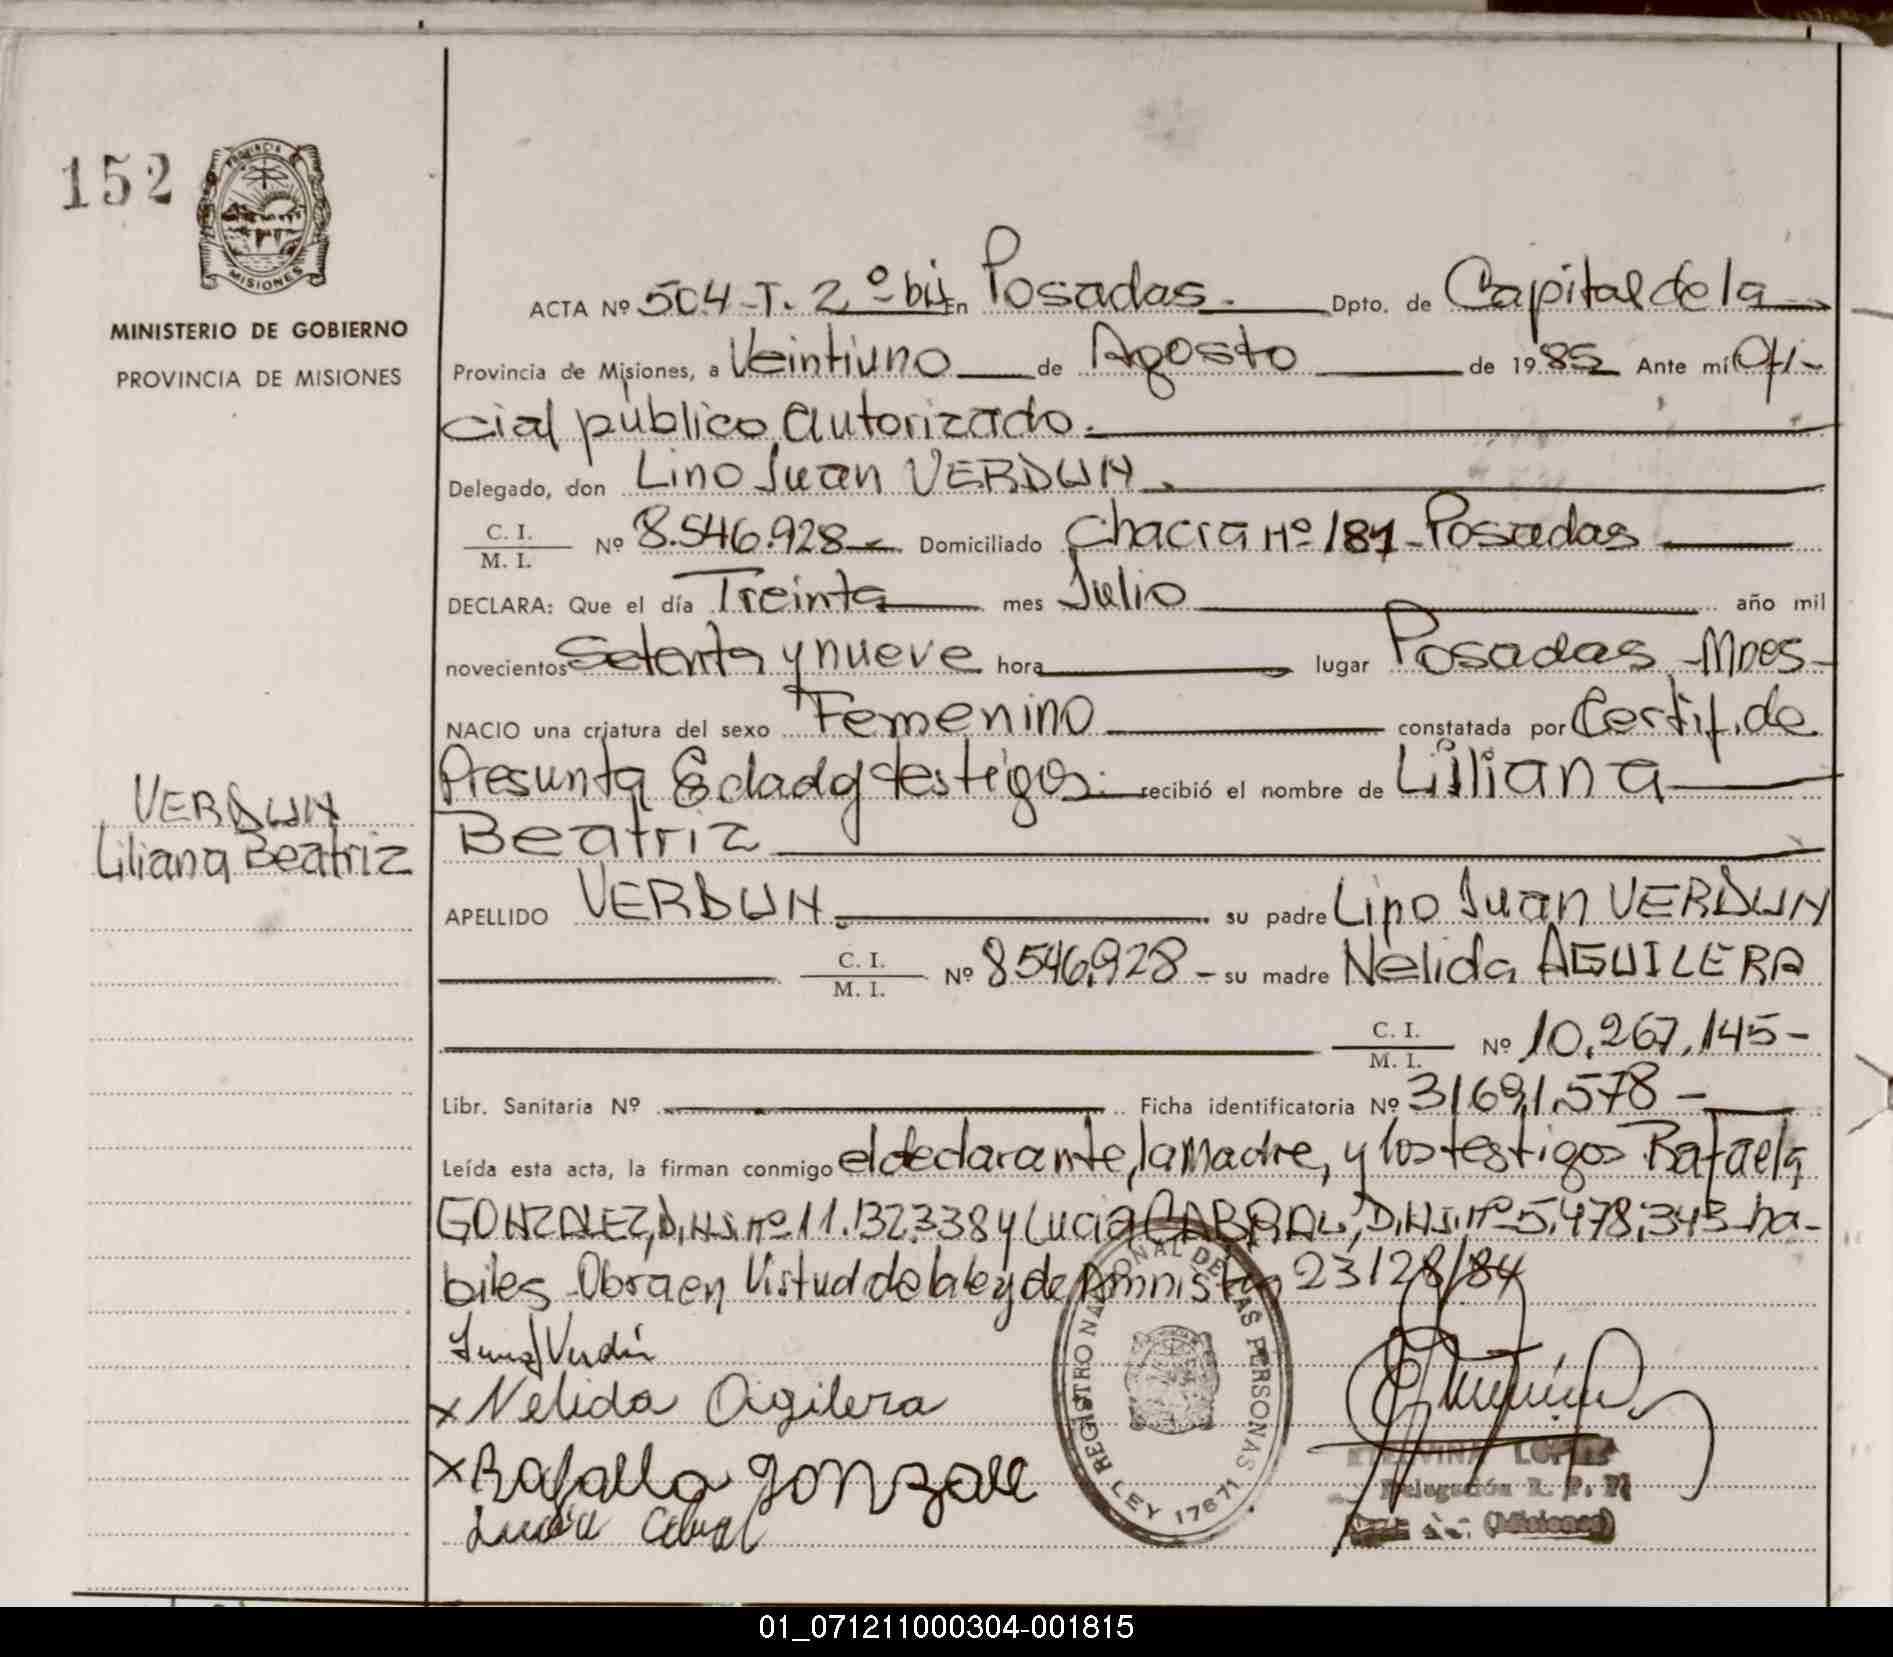 152
PROVINCIA
MISIONES
MINISTERIO DE GOBIERNO
PROVINCIA DE MISIONES
VERDUN
Liliana Beatriz
ACTA Nº 504-T. 2º bis En Posadas. Dpto. de Capital de la
Provincia de Misiones, a Veintiuno de Agosto de 1985 Ante mí Ofi-
cial público autorizado.
Delegado, don Lino Juan VERDUN
C. I.
M. I.
Nº 8.546.928 Domiciliado Chacra Nº 181-Posadas
DECLARA: Que el día Treinta mes Julio año mil
novecientos Setenta y nueve hora lugar Posadas -Mnes-
NACIO una criatura del sexo Femenino constatada por Certif. de
Presunta Edad y testigos. recibió el nombre de Liliana
Beatriz
APELLIDO VERDUN. su padre Lino Juan VERDUN
C. I.
M. I.
Nº 8546.928- su madre Nelida AGUILERA
C. I.
M. I.
Nº 10.267.145-
Libr. Sanitaria Nº Ficha identificatoria Nº 31691.578-
Leída esta acta, la firman conmigo el declarante, la madre, y los testigos Rafaela
GONZALEZ, D.N.I. nº 11.132.338 y Lucia CABRAL, D.N.I. nº 5.478.343-ha-
biles-Obra en Virtud de la ley de Amnistia 23128/84
Verdún
x Nelida Agilera
x Rafaela gonzale
Lucia Cabral
REGISTRO NACIONAL DE LAS PERSONAS
LEY 17671
ETELVINA LOPEZ
Delegación R. P. P.
(Misiones)
01_071211000304-001815